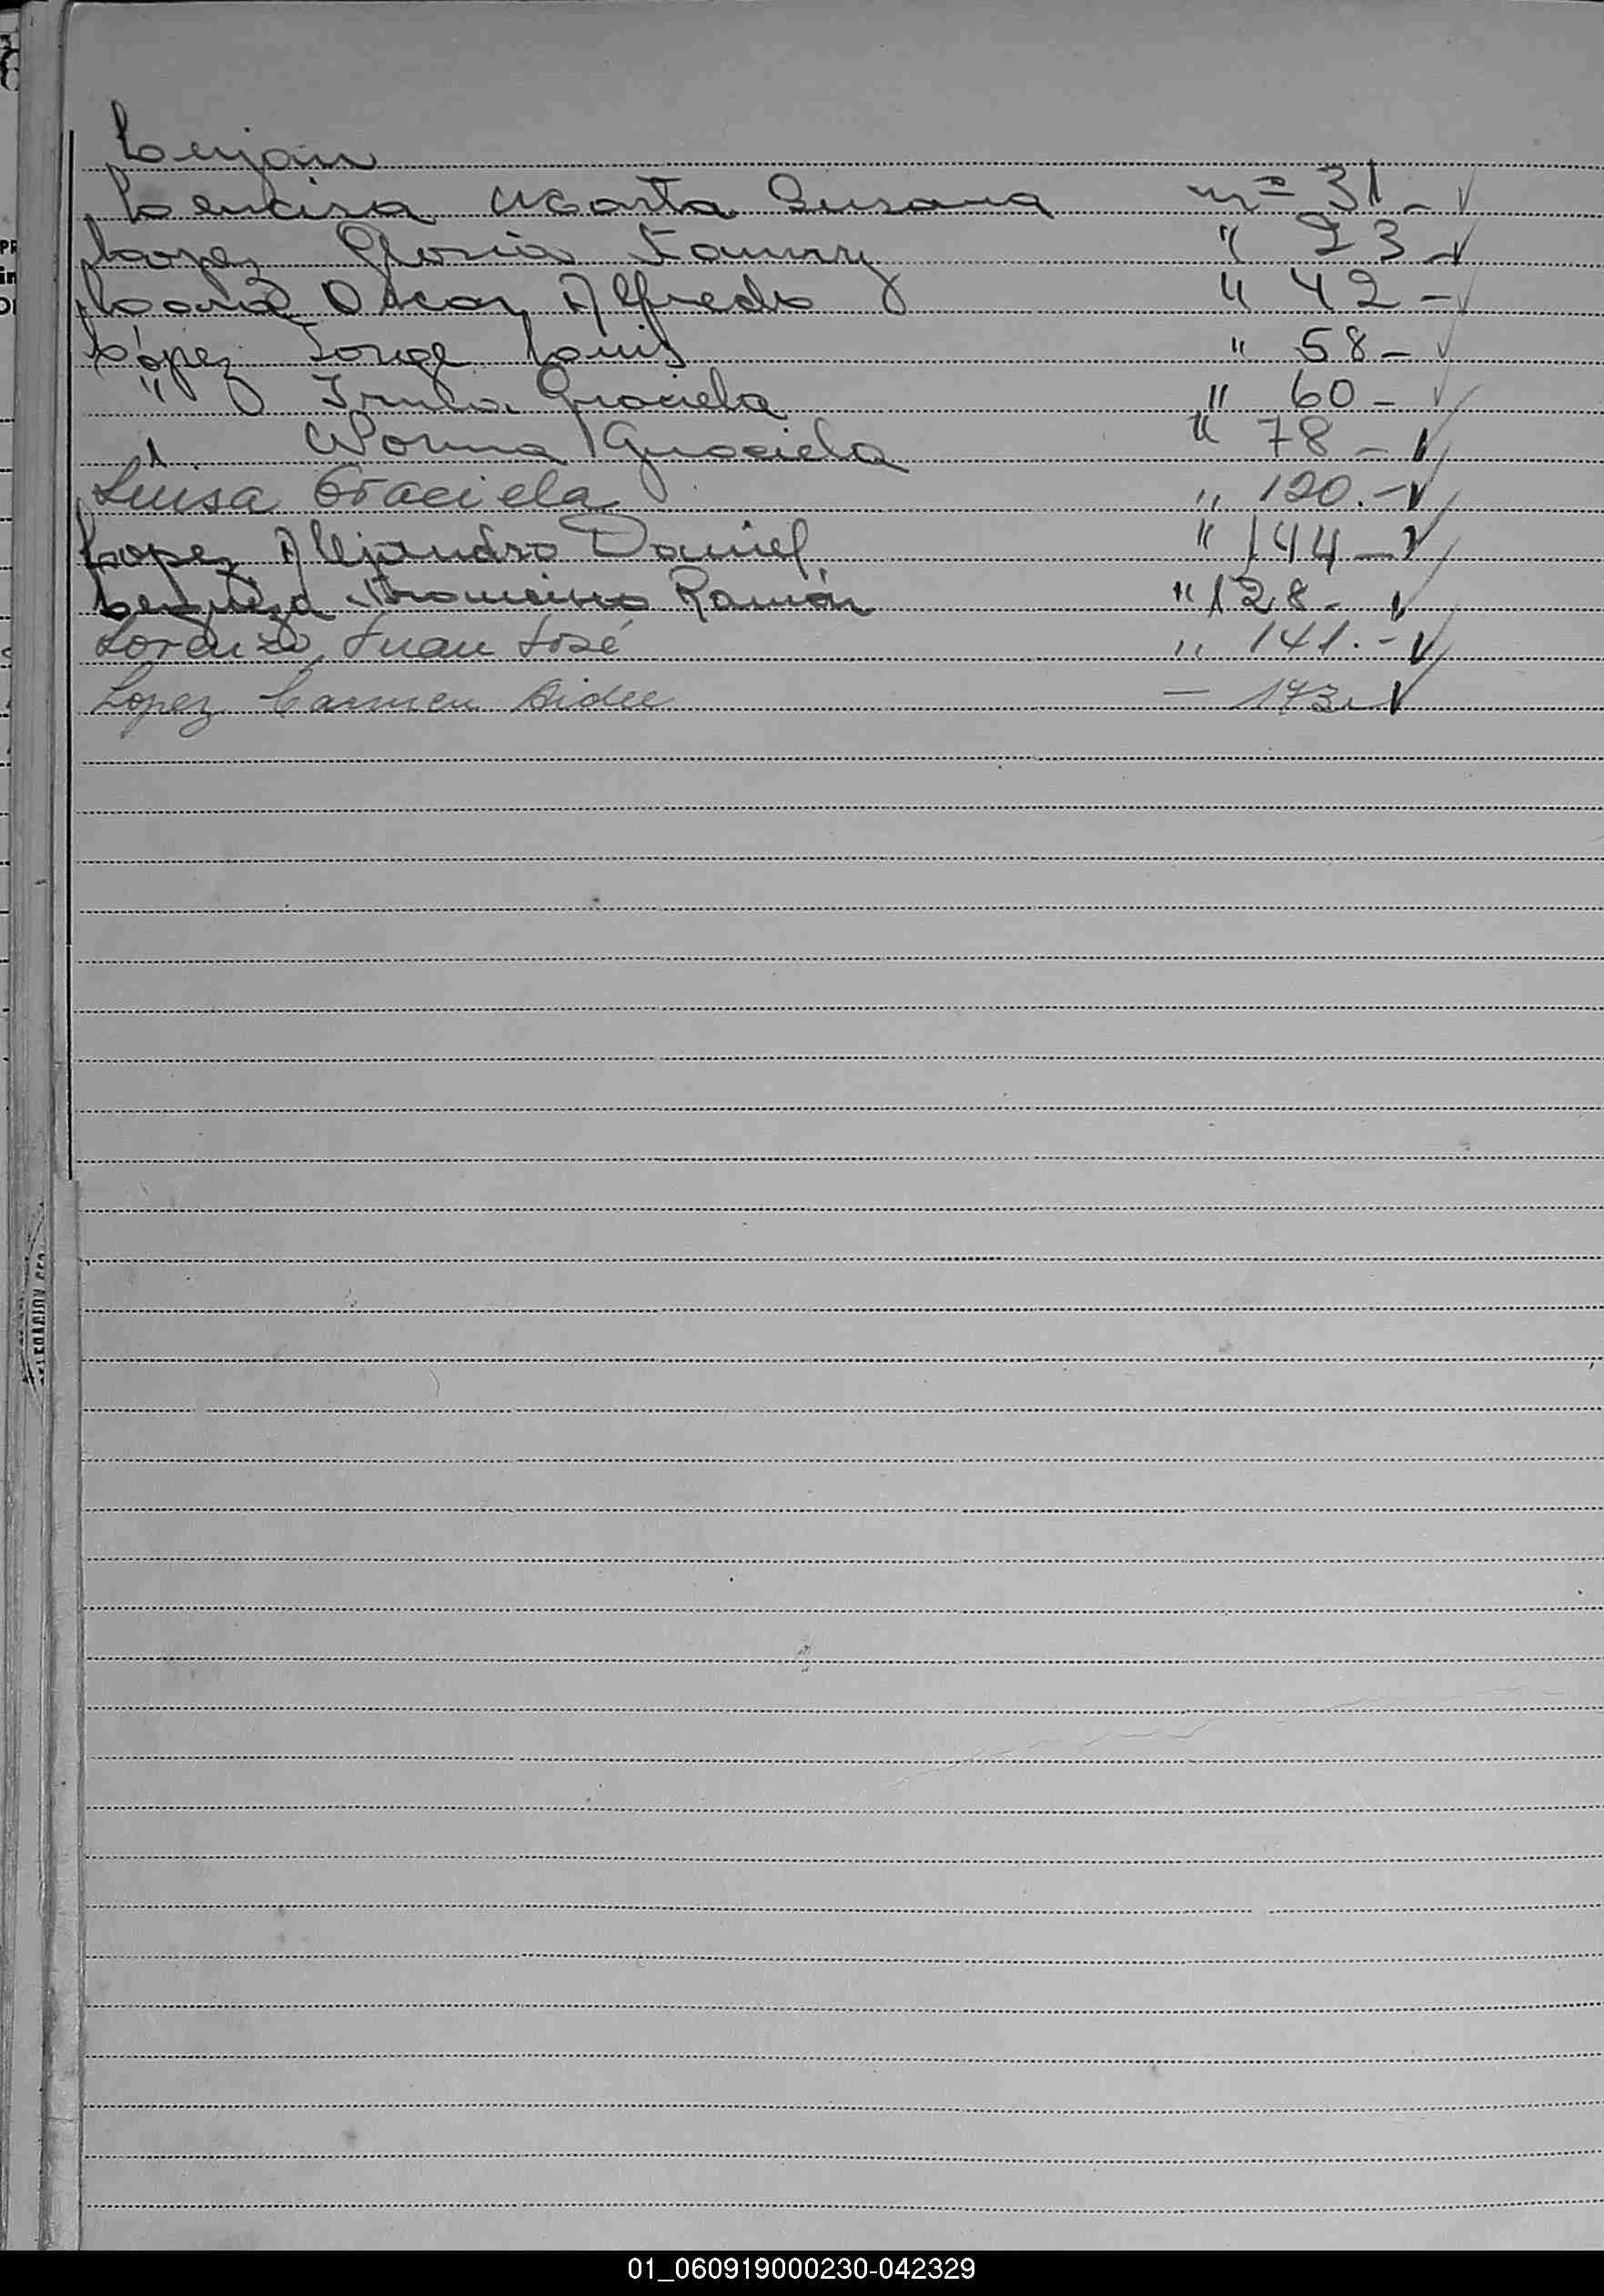 Lujan
Lencisa Marta Susana nº 31 -
Lopez Gloria Fanny " 23 -
Oscar Alfredo " 42 -
López Jorge Luis " 58 -
" Graciela " 60 -
" Norma Graciela " 78 -
Luisa Graciela " 120.-
Lopez Alejandro Daniel " 144 -
Francisco Ramón " 128 -
Lorenzo, Juan José " 141.-
Lopez Carmen Aidee - 173
01_060919000230-042329